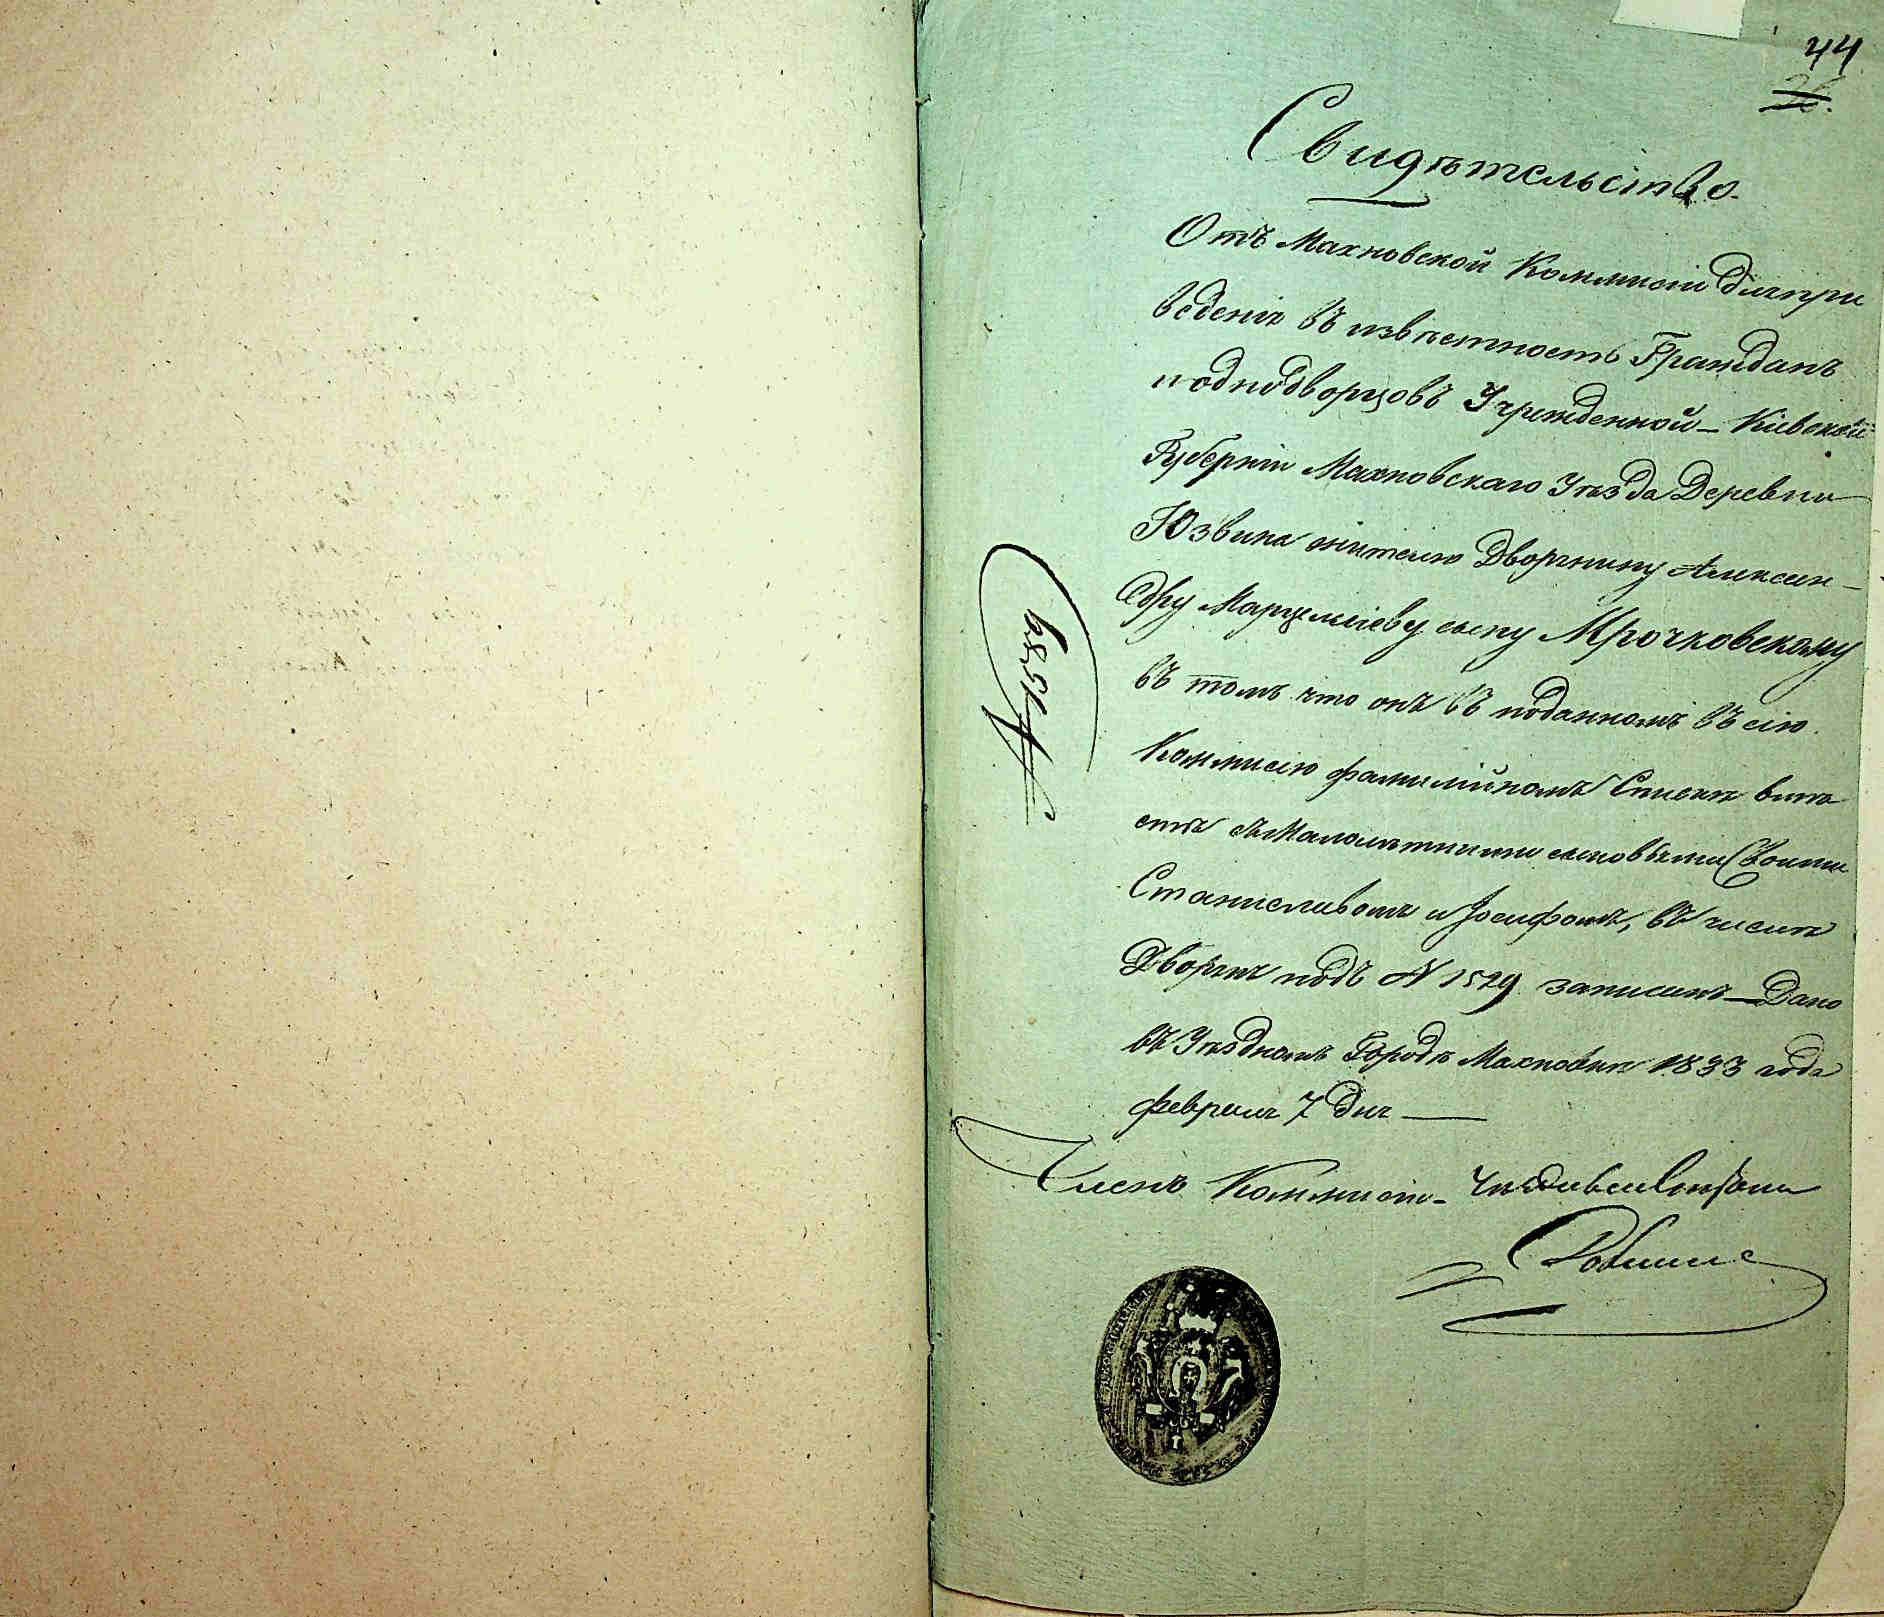 44
Свидѣтельство.
Отъ Махновской Коммисіи для при
веденія въ извѣстность Гражданъ
и однодворцовъ Учрежденной – Кіевской
Губерніи Махновскаго Уѣзда Деревни
Юзвина жителю Дворянину Алексан–
дру Марцеліеву сыну Мрочковскому
въ томъ что онъ въ поданномъ въ сію
Коммисію фамилійномъ Списке вмѣ
стѣ съ Малолѣтними сыновьями Своими
Станиславомъ и Іосифомъ, въ числѣ
Дворянъ подъ N 1529 записанъ – Дано
въ Уѣздномъ Городѣ Махновке 1833 года
февраля 7 дня
Членъ Коммисіи –